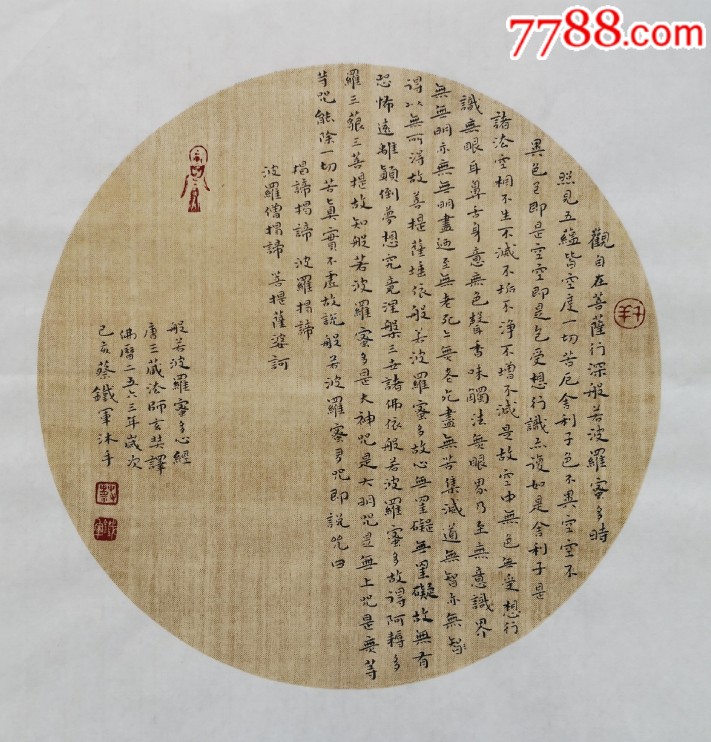 7788.com
觀自在菩薩行深般若波羅蜜多時
照見五蘊皆空度一切苦厄舍利子色不異空空不
異色色即是空空即是色受想行識亦復如是舍利子是
諸法空相不生不滅不垢不淨不增不減是故空中無色無受想行
識無眼耳鼻舌身意無色聲香味觸法無眼界乃至無意識界
無無明亦無無明盡迺至無老死亦無老死盡無苦集滅道無智亦無無智
得以無所得故菩提薩埵依般若波羅蜜多故心無罣礙無罣礙故無有
恐怖遠離顛倒夢想究竟涅槃三世諸佛依般若波羅蜜多故得阿耨多
羅三藐三菩提故知般若波羅蜜多是大神咒是大明咒是無上咒是無等
等咒能除一切苦真實不虛故說般若波羅蜜多咒即說咒曰
揭諦揭諦 波羅揭諦
波羅僧揭諦 菩提薩婆訶
般若波羅蜜多心經
唐三藏法師玄奘譯
佛曆二五六三年歲次
己亥蔡鐵軍沐手